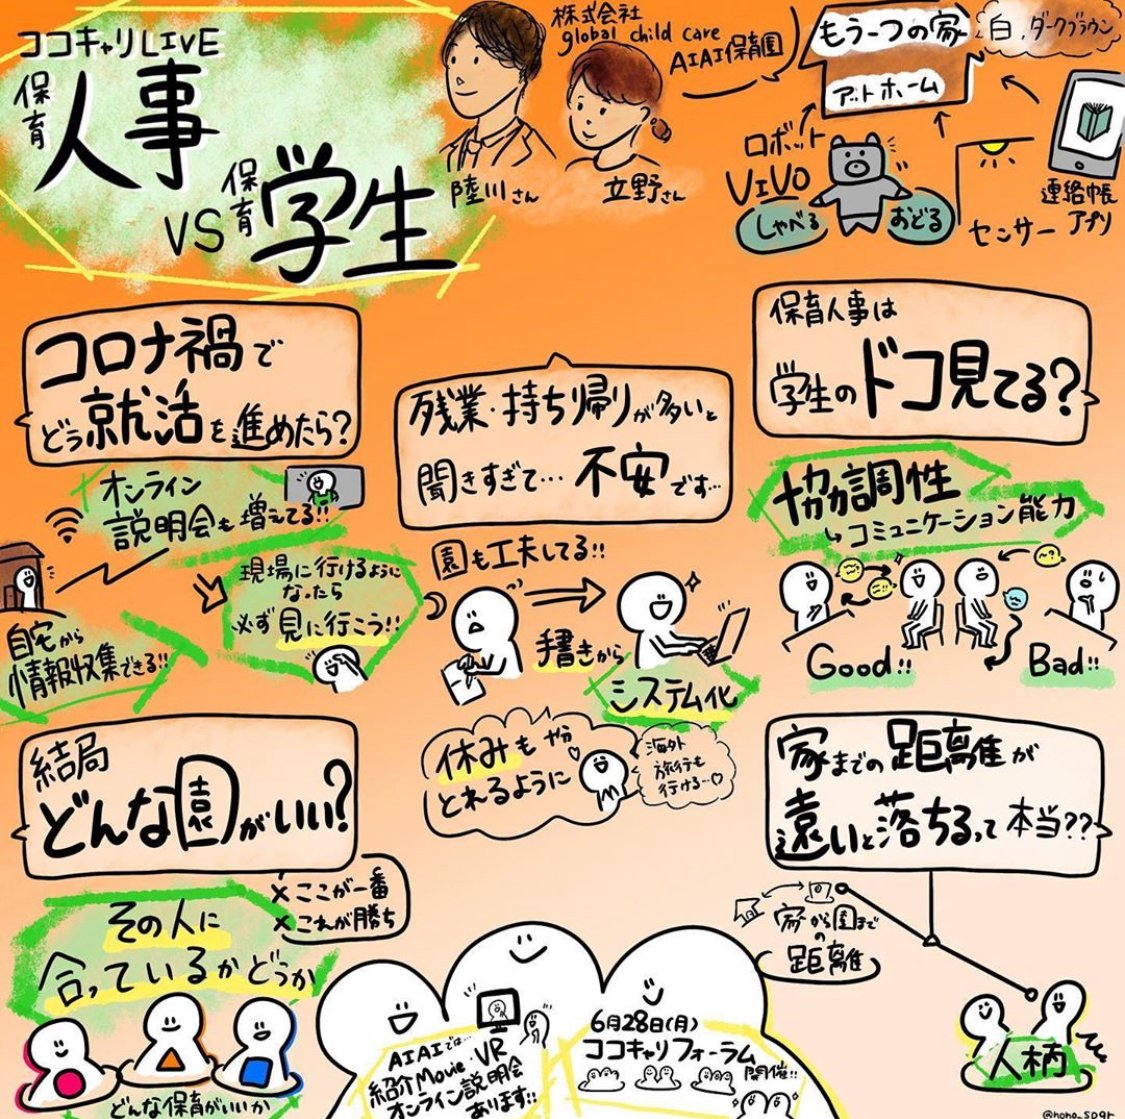 ココキャリLIVE
保育
人事
VS
保育
学生
陸川さん
立野さん
株式会社
global child care
AIAI保育園
もう一つの家
アットホーム
白,ダークブラウン
ロボット
VIVO
しゃべる
おどる
センサー
連絡帳
アプリ
コロナ禍で
どう就活を進めたら?
オンライン
説明会も増えてる!!
自宅から
情報収集できる!!
現場に行けるように
なったら
必ず見に行こう!!
残業・持ち帰りが多いと
聞きすぎて…不安です…
園も工夫してる!!
手書きから
システム化
休みも
とれるように
海外
旅行も
行ける…♡
保育人事は
学生のドコ見てる?
協調性
↳コミュニケーション能力
Good!!
Bad!!
結局
どんな園がいい?
×ここが一番
×これが勝ち
その人に
合っているかどうか
どんな保育がいいか
家までの距離が
遠いと落ちるって本当??
家から園まで
の
距離
人柄
AIAIでは…
紹介Movie・VR
オンライン説明会
あります!!
6月28日(月)
ココキャリフォーラム
開催!!